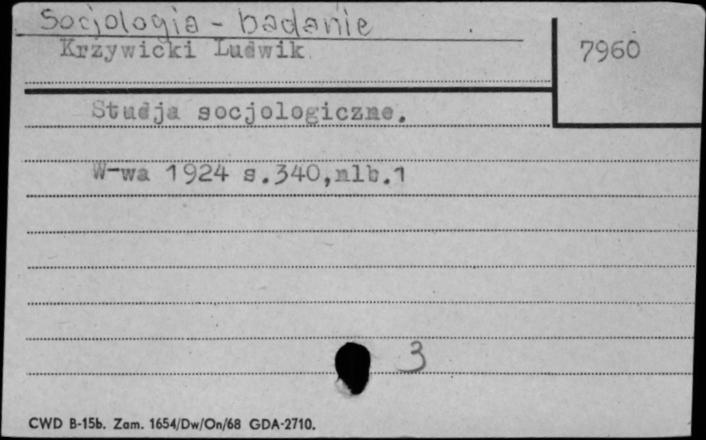 Socjologia - badanie
Krzywicki Ludwik
7960
Studja socjologiczne.
W-wa 1924 s.340,nlb.1
3
CWD B-15b. Zam. 1654/Dw/On/68 GDA-2710.